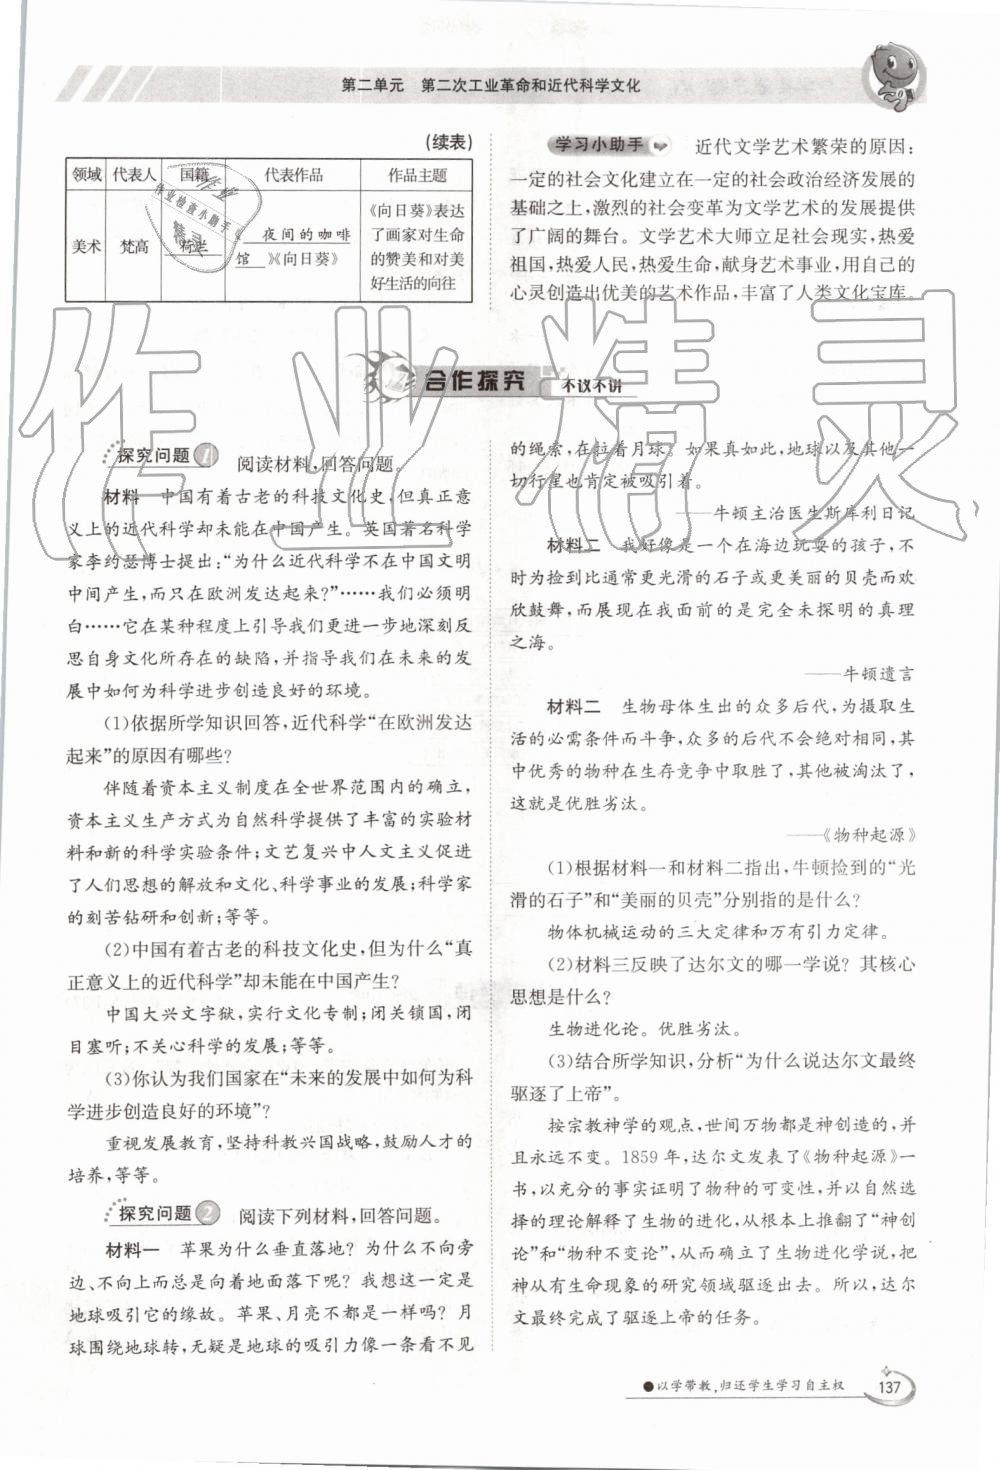 第二单元　第二次工业革命和近代科学文化
(续表)
领域 代表人 国籍 代表作品 作品主题
美术 梵高 荷兰 夜间的咖啡
馆》《向日葵》
《向日葵》表达
了画家对生命
的赞美和对美
好生活的向往
学习小助手　近代文学艺术繁荣的原因:
一定的社会文化建立在一定的社会政治经济发展的
基础之上,激烈的社会变革为文学艺术的发展提供
了广阔的舞台。文学艺术大师立足社会现实,热爱
祖国,热爱人民,热爱生命,献身艺术事业,用自己的
心灵创造出优美的艺术作品,丰富了人类文化宝库。
合作探究　不议不讲
探究问题1　阅读材料,回答问题。
材料　中国有着古老的科技文化史,但真正意
义上的近代科学却未能在中国产生。英国著名科学
家李约瑟博士提出:“为什么近代科学不在中国文明
中间产生,而只在欧洲发达起来?”……我们必须明
白……它在某种程度上引导我们更进一步地深刻反
思自身文化所存在的缺陷,并指导我们在未来的发
展中如何为科学进步创造良好的环境。
(1)依据所学知识回答,近代科学“在欧洲发达
起来”的原因有哪些?
伴随着资本主义制度在全世界范围内的确立,
资本主义生产方式为自然科学提供了丰富的实验材
料和新的科学实验条件;文艺复兴中人文主义促进
了人们思想的解放和文化、科学事业的发展;科学家
的刻苦钻研和创新;等等。
(2)中国有着古老的科技文化史,但为什么“真
正意义上的近代科学”却未能在中国产生?
中国大兴文字狱,实行文化专制;闭关锁国,闭
目塞听;不关心科学的发展;等等。
(3)你认为我们国家在“未来的发展中如何为科
学进步创造良好的环境”?
重视发展教育,坚持科教兴国战略,鼓励人才的
培养,等等。
探究问题2　阅读下列材料,回答问题。
材料一　苹果为什么垂直落地?为什么不向旁
边、不向上而总是向着地面落下呢?我想这一定是
地球吸引它的缘故。苹果、月亮不都是一样吗?月
球围绕地球转,无疑是地球的吸引力像一条看不见
的绳索,在拉着月球。如果真如此,地球以及其他一
切行星也肯定被吸引着。
——牛顿主治医生斯库利日记
材料二　我好像是一个在海边玩耍的孩子,不
时为捡到比通常更光滑的石子或更美丽的贝壳而欢
欣鼓舞,而展现在我面前的是完全未探明的真理
之海。
——牛顿遗言
材料三　生物母体生出的众多后代,为摄取生
活的必需条件而斗争,众多的后代不会绝对相同,其
中优秀的物种在生存竞争中取胜了,其他被淘汰了,
这就是优胜劣汰。
——《物种起源》
(1)根据材料一和材料二指出,牛顿捡到的“光
滑的石子”和“美丽的贝壳”分别指的是什么?
物体机械运动的三大定律和万有引力定律。
(2)材料三反映了达尔文的哪一学说?其核心
思想是什么?
生物进化论。优胜劣汰。
(3)结合所学知识,分析“为什么说达尔文最终
驱逐了上帝”。
按宗教神学的观点,世间万物都是神创造的,并
且永远不变。1859年,达尔文发表了《物种起源》一
书,以充分的事实证明了物种的可变性,并以自然选
择的理论解释了生物的进化,从根本上推翻了“神创
论”和“物种不变论”,从而确立了生物进化学说,把
神从有生命现象的研究领域驱逐出去。所以,达尔
文最终完成了驱逐上帝的任务。
●以学带教,归还学生学习自主权
137
作业精灵
作业
作业检查小助手
精灵